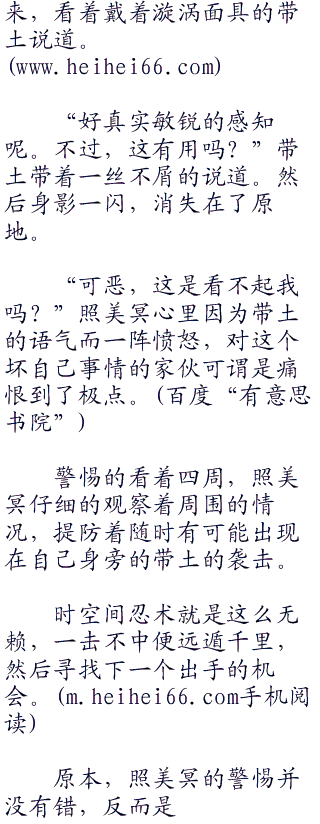 来，看着戴着漩涡面具的带
土说道。
(www.heihei66.com)
“好真实敏锐的感知
呢。不过，这有用吗？”带
土带着一丝不屑的说道。然
后身影一闪，消失在了原
地。
“可恶，这是看不起我
吗？”照美冥心里因为带土
的语气而一阵愤怒，对这个
坏自己事情的家伙可谓是痛
恨到了极点。(百度“有意思
书院”)
警惕的看着四周，照美
冥仔细的观察着周围的情
况，提防着随时有可能出现
在自己身旁的带土的袭击。
时空间忍术就是这么无
赖，一击不中便远遁千里，
然后寻找下一个出手的机
会。(m.heihei66.com手机阅
读)
原本，照美冥的警惕并
没有错，反而是